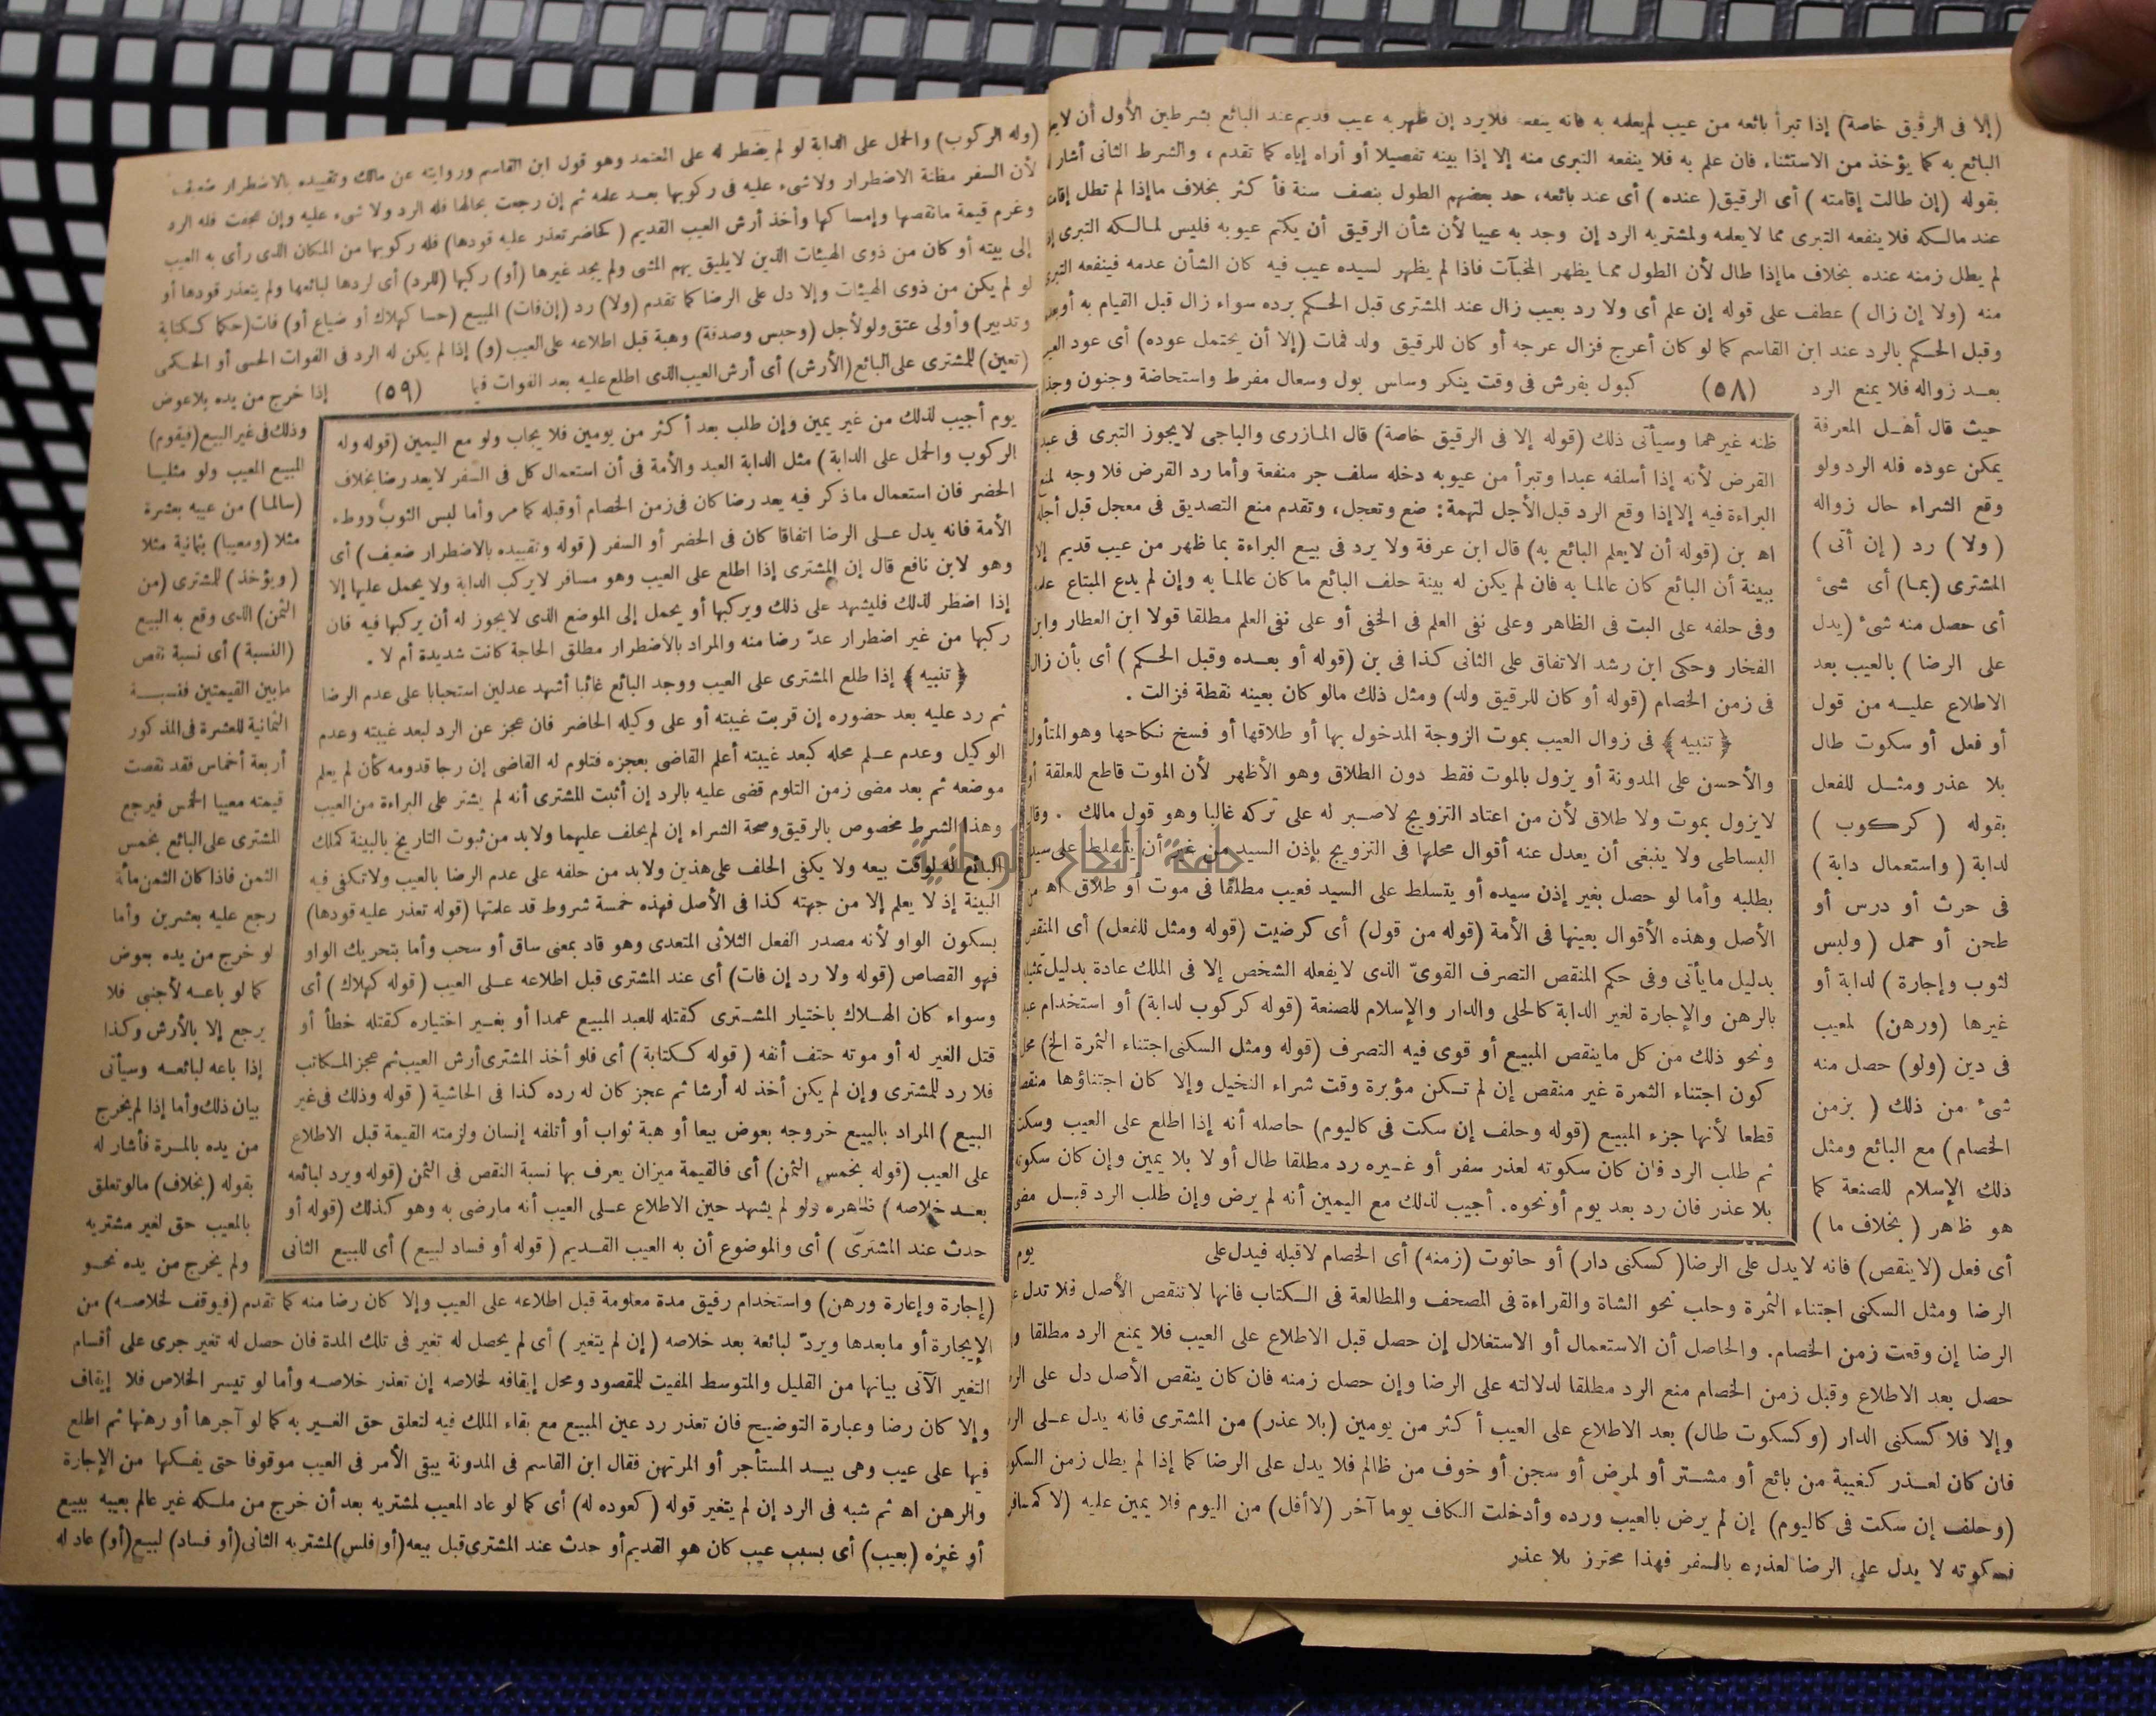 (إلا فى الرقيق خاصة) إذا تبرأ بائعه من عيب لم يعلمه به فانه ينفعه فلايرد إن ظهر به عيب قديم عند البائع بشرطين الأول أن لا
البائع به كما يؤخذ من الاستثناء فان علم به فلا ينفعه التبرى منه إلا إذا بينه تفصيلا أو أراه إياه كما تقدم ، والشرط الثانى أشار
بقوله (إن طالت إقامته ) أى الرقيق ( عنده ) أى عند بائعه، حد بعضهم الطول بنصف سنة فأكثر بخلاف ماإذا لم تطل
عند مالكه فلا ينفعه التبرى مما لا يعلمه ولمشتريه الرد إن وجد به عيبا لأن شأن الرقيق أن يكتم عيوبه فليس لمالكه التبرى
لم يطل زمنه عنده بخلاف ماإذا طال لأن الطول مما يظهر المخبآت فاذا لم يظهر لسيده عيب فيه كان الشأن عدمه فينفعه
منه (ولا إن زال ) عطف على قوله إن علم أى ولا رد بعيب زال عند المشترى قبل الحكم برده سواء زال قبل القيام به أو
وقبل الحكم بالرد عند ابن القاسم كما لو كان أعرج فزال عرجه أو كان للرقيق ولد فمات (إلا أن يحتمل عوده) أى عود
بعد زواله فلا يمنع الرد (٥٨) كبول بفرش فى وقت ينكر وساس بول وسعال مفرط واستحاضة وجنون
حيث قال أهل المعرفة
يمكن عوده فله الرد ولو
وقع الشراء حال زواله
( ولا ) رد ( إن أتى )
المشترى (بما) أى شىء
أى حصل منه شىء (يدل
على الرضا ) بالعيب بعد
الاطلاع عليه من قول
أو فعل أو سكوت طال
بلا عذر ومثل للفعل
بقوله ( كركوب )
لدابة ( واستعمال دابة )
فى حرث أو درس أو
طحن أو حمل ( ولبس
لثوب وإجارة ) لدابة أو
غيرها (ورهن) لمعيب
فى دين (ولو) حصل منه
شىء من ذلك ( بزمن
الخصام ) مع البائع ومثل
ذلك الإسلام للصنعة كما
هو ظاهر ( بخلاف ما )
ظنه غيرهما وسيأتى ذلك (قوله إلا فى الرقيق خاصة) قال المازرى والباجى لايجوز التبرى فى
القرض لأنه إذا أسلفه عبدا وتبرأ من عيوبه دخله سلف جر منفعة وأما رد القرض فلا وجه
البراءة فيه إلاإذا وقع الرد قبل الأجل لتهمة: ضع وتعجل، وتقدم منع التصديق فى معجل قبل
اه بن (قوله أن لايعلم البائع به) قال ابن عرفة ولا يرد فى بيع البراءة بما ظهر من عيب قديم إلا
ببينة أن البائع كان عالما به فان لم يكن له بينة حلف البائع ما كان عالما به وإن لم يدع المبتاع
وفى حلفه على البت فى الظاهر وعلى نفى العلم فى الخفى أو على نفى العلم مطلقا قولا ابن العطار وابن
الفخار وحكى ابن رشد الاتفاق على الثانى كذا فى بن (قوله أو بعده وقبل الحكم ) أى بأن زال
فى زمن الخصام (قوله أو كان للرقيق ولد) ومثل ذلك مالو كان بعينه نقطة فزالت .
﴿ تنبيه ﴾ فى زوال العيب بموت الزوجة المدخول بها أو طلاقها أو فسخ نكاحها وهو المتأول
والأحسن على المدونة أو يزول بالموت فقط دون الطلاق وهو الأظهر لأن الموت قاطع للعلقة
لايزول بموت ولا طلاق لأن من اعتاد التزويج لاصبر له على تركه غالبا وهو قول مالك .
البساطى ولا ينبغى أن يعدل عنه أقوال محلها فى التزويج بإذن السيد من غير أن يتسلط على
بطلبه وأما لو حصل بغير إذن سيده أو يتسلط على السيد فعيب مطلقا فى موت أو طلاق اه من
الأصل وهذه الأقوال بعينها فى الأمة (قوله من قول) أى كرضيت (قوله ومثل للفعل) أى المنقص
بدليل مايأتى وفى حكم المنقص التصرف القوىّ الذى لايفعله الشخص إلا فى الملك عادة بدليل
بالرهن والإجارة لغير الدابة كالحلى والدار والإسلام للصنعة (قوله كركوب لدابة) أو استخدام
ونحو ذلك من كل ماينقص المبيع أو قوى فيه التصرف (قوله ومثل السكنى اجتناء الثمرة الخ)
كون اجتناء الثمرة غير منقص إن لم تكن مؤبرة وقت شراء النخيل وإلا كان اجتناؤها
قطعا لأنها جزء المبيع (قوله وحلف إن سكت فى كاليوم) حاصله أنه إذا اطلع على العيب وسكت
ثم طلب الرد فان كان سكوته لعذر سفر أو غيره رد مطلقا طال أو لا بلا يمين وإن كان
بلا عذر فان رد بعد يوم أو نحوه. أجيب لذلك مع اليمين أنه لم يرض وإن طلب الرد قبل
أى فعل (لاينقص) فانه لايدل على الرضا ( كسكنى دار) أو حانوت (زمنه) أى الخصام لاقبله فيدل على يوم
الرضا ومثل السكنى اجتناء الثمرة وحلب نحو الشاة والقراءة فى المصحف والمطالعة فى الكتاب فانها لاتنقص الأصل فلا تدل
الرضا إن وقعت زمن الخصام. والحاصل أن الاستعمال أو الاستغلال إن حصل قبل الاطلاع على العيب فلا يمنع الرد مطلقا
حصل بعد الاطلاع وقبل زمن الخصام منع الرد مطلقا لدلالته على الرضا وإن حصل زمنه فان كان ينقص الأصل دل على
وإلا فلا كسكنى الدار (وكسكوت طال) بعد الاطلاع على العيب أكثر من يومين (بلا عذر) من المشترى فانه يدل على
فان كان لعذر كغيبة من بائع أو مشتر أو لمرض أو سجن أو خوف من ظالم فلا يدل على الرضا كما إذا لم يطل زمن
(وحلف إن سكت فى كاليوم) إن لم يرض بالعيب ورده وأدخلت الكاف يوما آخر (لا أقل) من اليوم فلا يمين عليه (لا كمسافر
فسكوته لا يدل على الرضا لعذره بالسفر فهذا محترز بلا عذر
(وله الركوب) والحمل على الدابة لو لم يضطر له على المعتمد وهو قول ابن القاسم وروايته عن مالك وتقييده بالاضطرار ضعيف
لأن السفر مظنة الاضطرار ولاشىء عليه فى ركوبها بعد علمه ثم إن رجعت بحالها فله الرد ولا شىء عليه وإن عجفت فله الرد
وغرم قيمة مانقصها وإمساكها وأخذ أرش العيب القديم ( كحاضر تعذر عليه قودها) فله ركوبها من المكان الذى رأى به العيب
إلى بيته أو كان من ذوى الهيئات الذين لايليق بهم المشى ولم يجد غيرها (أو) ركبها (للرد) أى لردها لبائعها ولم يتعذر قودها أو
لو لم يكن من ذوى الهيئات وإلا دل على الرضا كما تقدم (ولا) رد (إن فات) المبيع (حسا كهلاك أو ضياع أو) فات (حكما ككتابة
وتدبير) وأولى عتق ولو لأجل (وحبس وصدقة) وهبة قبل اطلاعه على العيب (و) إذا لم يكن له الرد فى الفوات الحسى أو الحكمى
(تعين) للمشترى على البائع (الأرش) أى أرش العيب الذى اطلع عليه بعد الفوات فيما (٥٩) إذا خرج من يده بلاعوض
يوم أجيب لذلك من غير يمين وإن طلب بعد أكثر من يومين فلا يجاب ولو مع اليمين (قوله وله
الركوب والحمل على الدابة ) مثل الدابة العبد والأمة فى أن استعمال كل فى السفر لايعد رضا بخلاف
الحضر فان استعمال ماذكر فيه يعد رضا كان فى زمن الخصام أو قبله كما مر وأما لبس الثوب ووطء
الأمة فانه يدل على الرضا اتفاقا كان فى الحضر أو السفر ( قوله وتقييده بالاضطرار ضعيف ) أى
وهو لابن نافع قال إن المشترى إذا اطلع على العيب وهو مسافر لايركب الدابة ولا يحمل عليها إلا
إذا اضطر لذلك فليشهد على ذلك ويركبها أو يحمل إلى الموضع الذى لايجوز له أن يركبها فيه فان
ركبها من غير اضطرار عدّ رضا منه والمراد بالاضطرار مطلق الحاجة كانت شديدة أم لا .
﴿ تنبيه ﴾ إذا طلع المشترى على العيب ووجد البائع غائبا أشهد عدلين استحبابا على عدم الرضا
ثم رد عليه بعد حضوره إن قربت غيبته أو على وكيله الحاضر فان عجز عن الرد لبعد غيبته وعدم
الوكيل وعدم علم محله كبعد غيبته أعلم القاضى بعجزه فتلوم له القاضى إن رجا قدومه كأن لم يعلم
موضعه ثم بعد مضى زمن التلوم قضى عليه بالرد إن أثبت المشترى أنه لم يشتر على البراءة من العيب
وهذا الشرط مخصوص بالرقيق وصحة الشراء إن لم يحلف عليهما ولابد من ثبوت التاريخ بالبينة كملك
البائع له لوقت بيعه ولا يكفى الحلف على هذين ولابد من حلفه على عدم الرضا بالعيب ولاتكفى فيه
البينة إذ لا يعلم إلا من جهته كذا فى الأصل فهذه خمسة شروط قد علمتها (قوله تعذر عليه قودها)
بسكون الواو لأنه مصدر الفعل الثلاثى المتعدى وهو قاد بمعنى ساق أو سحب وأما بتحريك الواو
فهو القصاص (قوله ولا رد إن فات) أى عند المشترى قبل اطلاعه على العيب ( قوله كهلاك ) أى
وسواء كان الهلاك باختيار المشترى كقتله للعبد المبيع عمدا أو بغير اختياره كقتله خطأ أو
قتل الغير له أو موته حتف أنفه ( قوله ككتابة ) أى فلو أخذ المشترى أرش العيب ثم عجز المكاتب
فلا رد للمشترى وإن لم يكن أخذ له أرشا ثم عجز كان له رده كذا فى الحاشية ( قوله وذلك فى غير
البيع ) المراد بالبيع خروجه بعوض بيعا أو هبة ثواب أو أتلفه إنسان ولزمته القيمة قبل الاطلاع
على العيب (قوله بخمس الثمن) أى فالقيمة ميزان يعرف بها نسبة النقص فى الثمن (قوله ويرد لبائعه
بعد خلاصه ) ظاهره ولو لم يشهد حين الاطلاع على العيب أنه مارضى به وهو كذلك (قوله أو
حدث عند المشترى ) أى والموضوع أن به العيب القديم ( قوله أو فساد لبيع ) أى للبيع الثانى
وذلك فى غير البيع (فيقوم)
المبيع المعيب ولو مثليا
(سالما) من عيبه بعشرة
مثلا (ومعيبا) بثمانية مثلا
(ويؤخذ) للمشترى (من
الثمن) الذى وقع به البيع
(النسبة) أى نسبة نقص
مابين القيمتين فنسبة
الثمانية للعشرة فى المذكور
أربعة أخماس فقد نقصت
قيمته معيبا الخمس فيرجع
المشترى على البائع بخمس
الثمن فاذا كان الثمن مائة
رجع عليه بعشرين وأما
لو خرج من يده بعوض
كما لو باعه لأجنبى فلا
يرجع إلا بالأرش وكذا
إذا باعه لبائعه وسيأتى
بيان ذلك وأما إذا لم يخرج
من يده بالمرة فأشار له
بقوله (بخلاف) مالو تعلق
بالمعيب حق لغير مشتريه
ولم يخرج من يده نحو
(إجارة وإعارة ورهن) واستخدام رقيق مدة معلومة قبل اطلاعه على العيب وإلا كان رضا منه كما تقدم (فيوقف لخلاصه) من
الإيجارة أو مابعدها ويردّ لبائعه بعد خلاصه ( إن لم يتغير ) أى لم يحصل له تغير فى تلك المدة فان حصل له تغير جرى على أقسام
التغير الآتى بيانها من القليل والمتوسط المفيت للمقصود ومحل إيقافه لخلاصه إن تعذر خلاصه وأما لو تيسر الخلاص فلا إيقاف
وإلا كان رضا وعبارة التوضيح فان تعذر رد عين المبيع مع بقاء الملك فيه لتعلق حق الغير به كما لو آجرها أو رهنها ثم اطلع
فيها على عيب وهى بيد المستأجر أو المرتهن فقال ابن القاسم فى المدونة يبقى الأمر فى العيب موقوفا حتى يفكها من الإجارة
والرهن اه ثم شبه فى الرد إن لم يتغير قوله ( كعوده له) أى كما لو عاد المعيب لمشتريه بعد أن خرج من ملكه غير عالم بعيبه ببيع
أو غيره (بعيب) أى بسبب عيب كان هو القديم أو حدث عند المشترى قبل بيعه (أو فلس) لمشتريه الثانى (أو فساد) لبيع (أو) عاد له
جامعة النجاح الوطنية